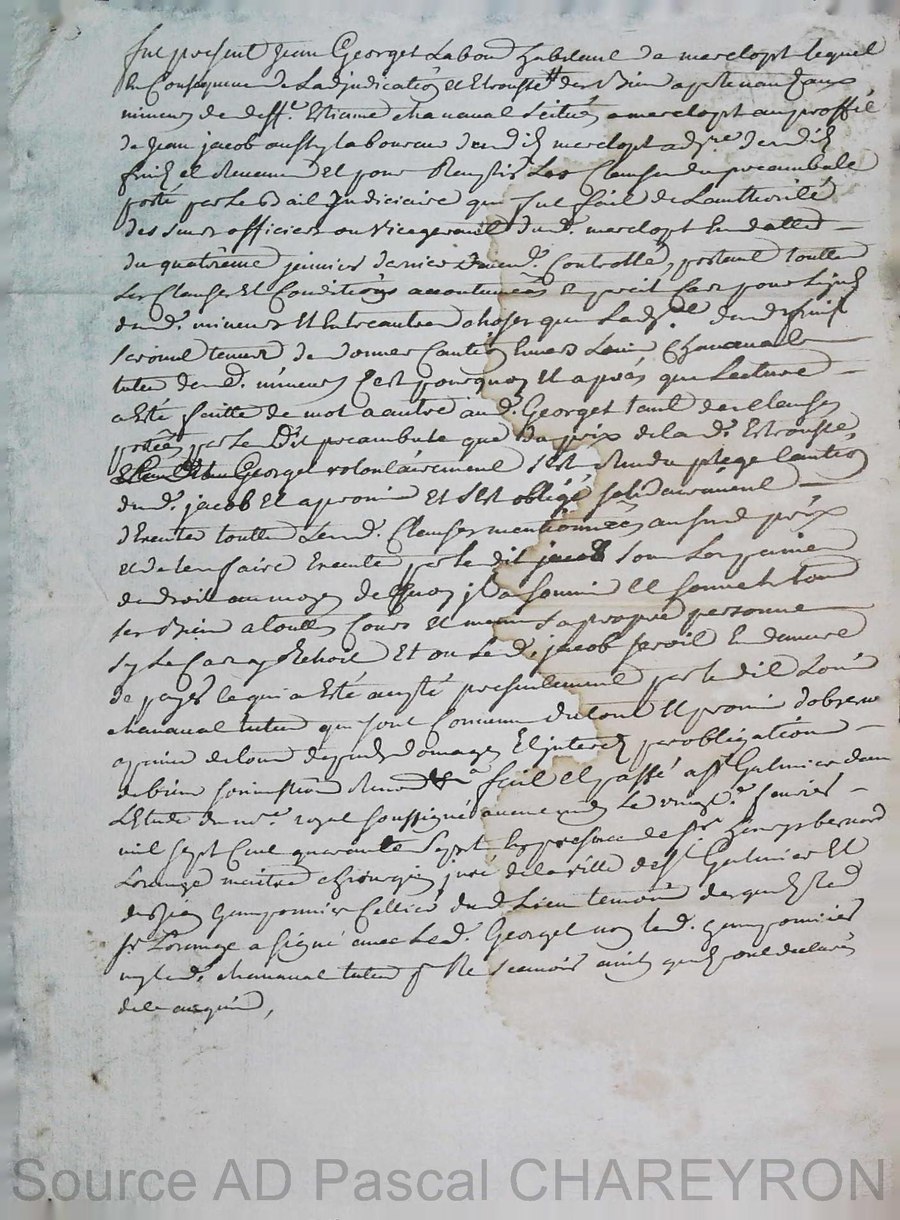 fut present Jean Georget Labour habitant de marclopt lequel
En Consequence de Ladjudication et Etrousse des Bien appartenant aux
mineurs de deff.t Etienne chanaval scitués a marclopt au proffit
de Jean jacob aussy Laboureur dud. marclopt adj.re desdits
fruits et Revenus Et pour Remplir Les Clauses du preambule
porté par Le Bail Judiciaire qui fut fait de Lauthorité
des sieurs officiers du d. marclopt En datte
du quatrieme janvier dernier Controllé, portant touttes
Les Clauses Et Conditions accoutumées En pareil Cas pour
dud. mineurs Et Entre autres choses que Lad.re desd. fruits
seroient tenus de donner Caution Envers Louis Chanaval
tuteur desd. mineurs C'est pourquoy Et apres que Lecture
a Eté faitte de mot a autre aud. Georget tant des clauses
portées par Le Dit preambule que du prix de lad. Etrousse
Georget volontairement s'est Rendu plege Caution
dud. jacob Et a promis Et s'est obligé solidairement
d'Executer touttes Lesd. Clauses mentionnées au susd. prix
et de les faire Executer par le dit jacob sous Les peines
de droit au moyen de quoy jl a soumis Et soumet tous
ses Biens a touttes Cours Et meme sa propre personne
sy Le Cas y Echoit Et ou Led. jacob seroit En demeure
de payer ce qui a Eté accepté presentement par le dit Louis
chanaval tuteur qui sont Convenus du tout Et promis d'observer
a peine de tous depends domages Et jnterets par obligation
de biens soumissions Renon.on &a fait et passé a St Galmier dans
L'Etude du no.re royal soussigné Le vingt fevrier
mil sept Cent quarante sept En presence de Sr henry bernard
Lorange maitre chirurgien juré de la ville de St Galmier Et
Guimponnier Cellier dud. Lieu temoins desquels led.
Sr Lorange a signé avec Led. Georget non led. Guimponnier
ny led. chanaval tuteur p.r ne scavoir ainsy qu'ils ont declarés
de ce enquis,
Source AD Pascal CHAREYRON